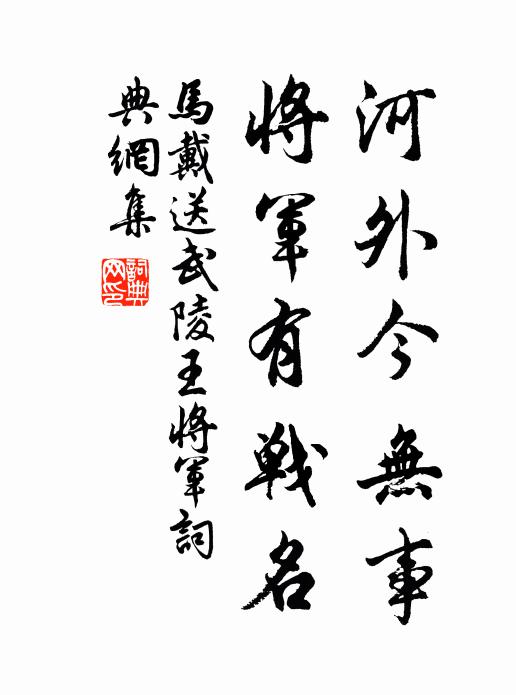 河外今無事
將軍有戰名
馬戴送武陵王將軍詞
典網集
詞典網印